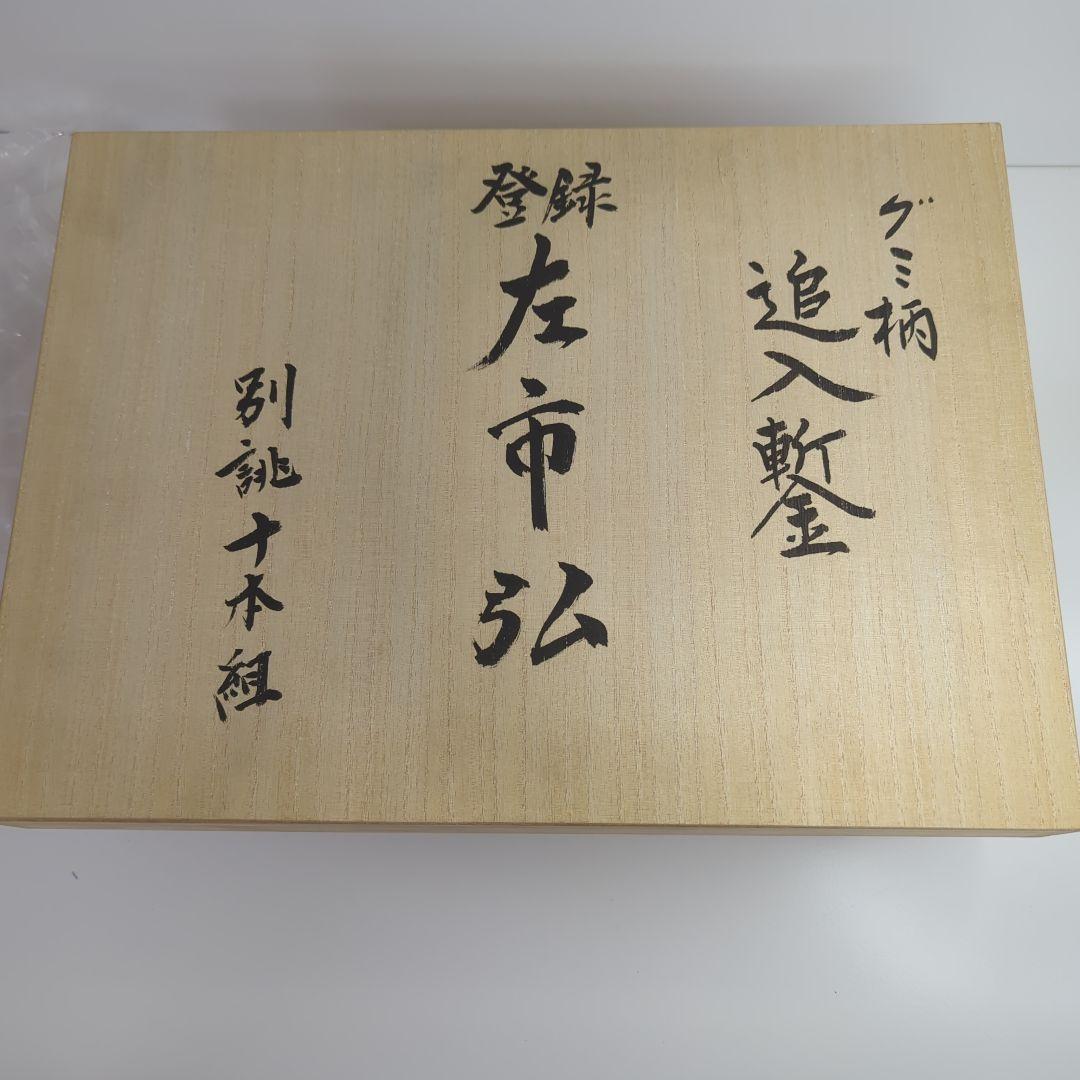 グミ柄
追入鏨
登録
左市弘
別誂十本組